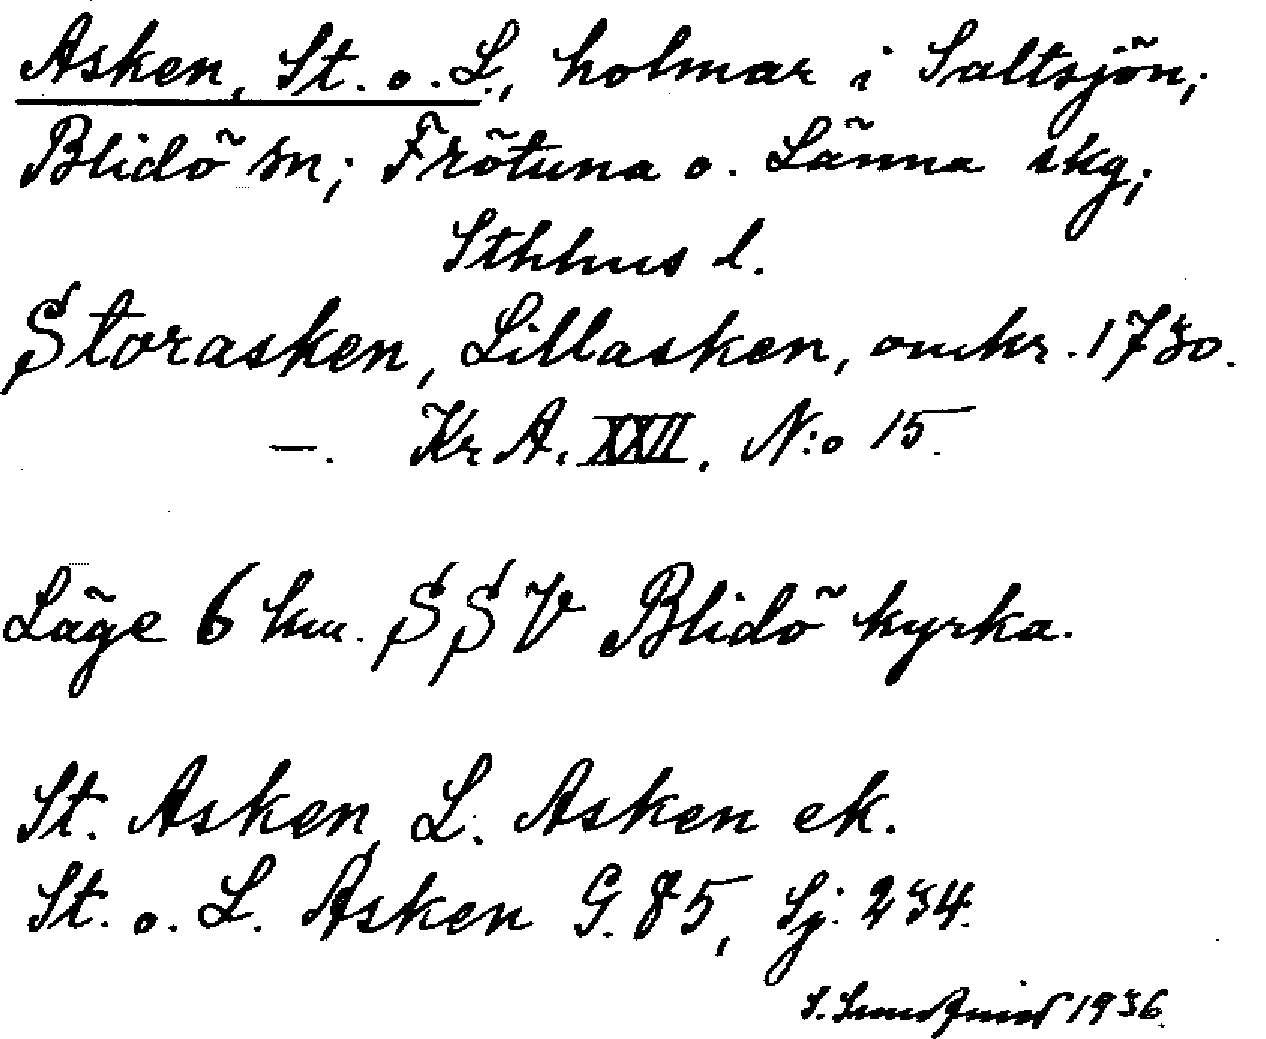 Asken, St. o. L., holmar i Saltsjön;
Blidö sn; Frötuna o. Länna skg;
Sthlms l.
Storasken, Lillasken, omkr. 1730.
—. Kr A. XXII. N:o 15.
Läge 6 km. SSV Blidö kyrka.
St. Asken, L. Asken ek.
St. o. L. Asken G. 85, Sj. 234.
S. 1936.